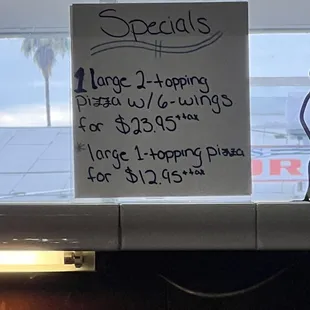 Specials
1 large 2-topping
pizza w/ 6-wings
for $23.95 +tax
*large 1-topping pizza
for $12.95 +tax
OR